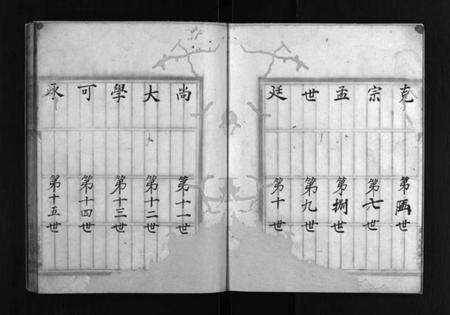 克 第陸世
宗 第七世
孟 第捌世
世 第九世
廷 第十世
尚 第十一世
大 第十二世
學 第十三世
可 第十四世
承 第十五世